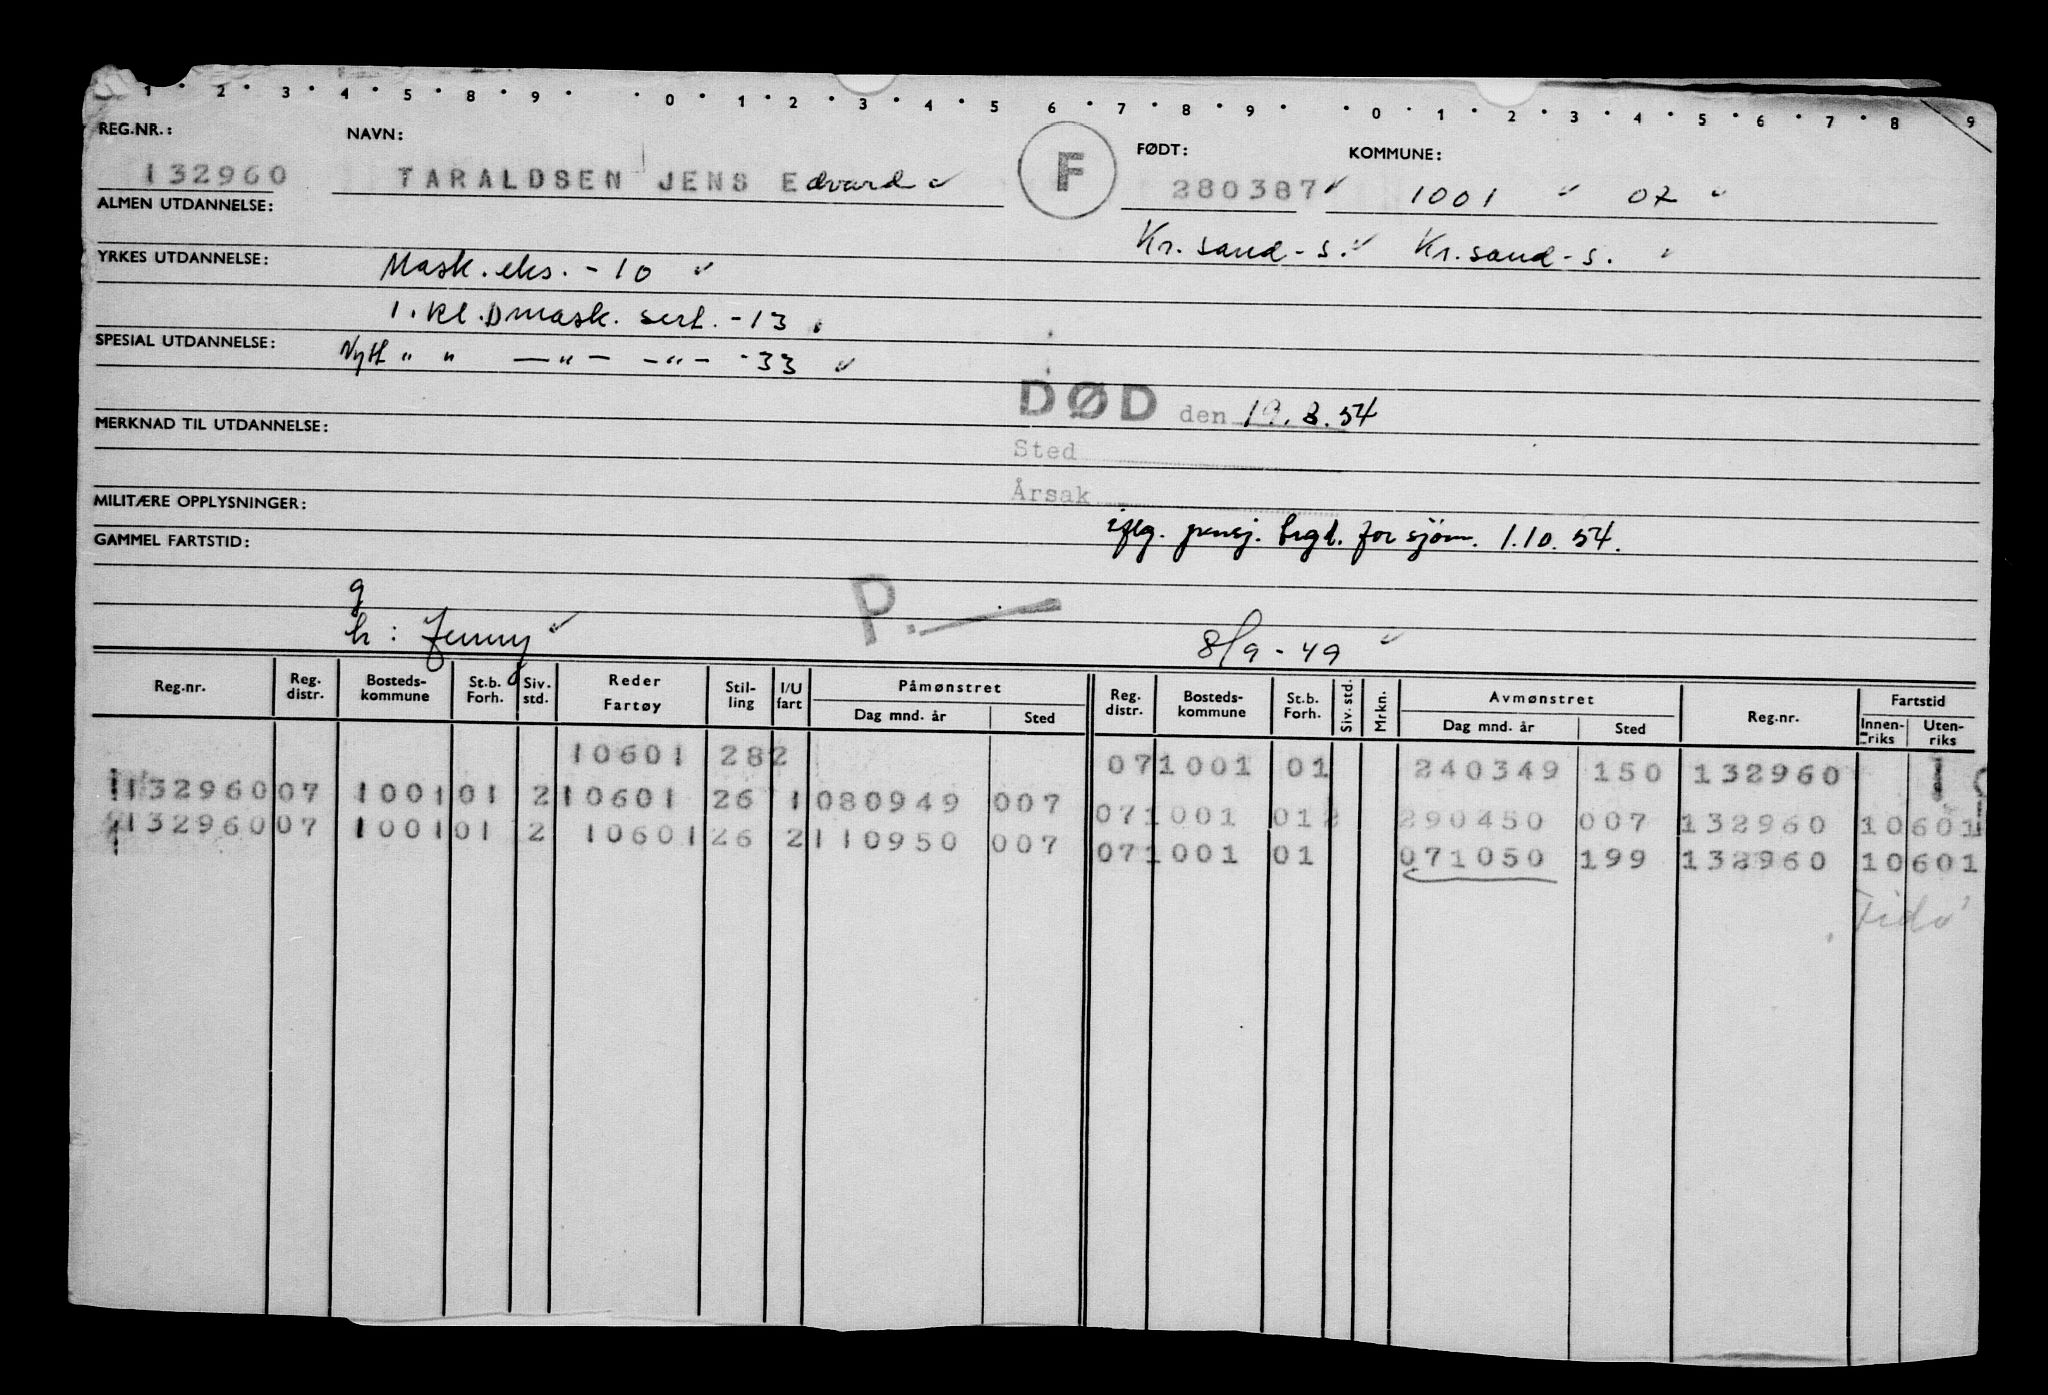 1 · 2 · 3 · 4 · 5 · 8 · 9 · · 0 · 1 · 2 · 3 · 4 · 5 6 · 7 · 8 · 9 · · 0 · 1 · 2 · 3 · 4 · 5 · 6 · 7 · 8 9
REG.NR.: NAVN: F FØDT: KOMMUNE:
132960 TARALDSEN JENS Edvard 280387 1001 07
ALMEN UTDANNELSE:
Kr. sand - s. Kr. sand - s.
YRKES UTDANNELSE: Mask. eks. - 10
1. kl. D mask. sert. - 13.
SPESIAL UTDANNELSE: Nytt " " — " — — " — - 33
DØD den 19. 8. 54
MERKNAD TIL UTDANNELSE:
Sted
Årsak
MILITÆRE OPPLYSNINGER:
iflg. pensj. trgd. for sjøm. 1.10.54.
GAMMEL FARTSTID:
g
P.—
h: Jenny 8/9 - 49
Reg.nr. Reg. distr. Bosteds-kommune St.b. Forh. Siv. std. Reder Fartøy Stil-ling I/U fart Påmønstret Dag mnd. år Sted Reg. distr. Bosteds-kommune St.b. Forh. Siv. std. Mrkn. Avmønstret Dag mnd. år Sted Reg.nr. Fartstid Innen-riks Uten-riks
10601 282 07 1001 01 240349 150 132960 1
132960 07 1001 01 2 10601 26 1 080949 007 07 1001 01 2 290450 007 132960 10601
132960 07 1001 01 2 10601 26 2 110950 007 07 1001 01 071050 199 132960 10601